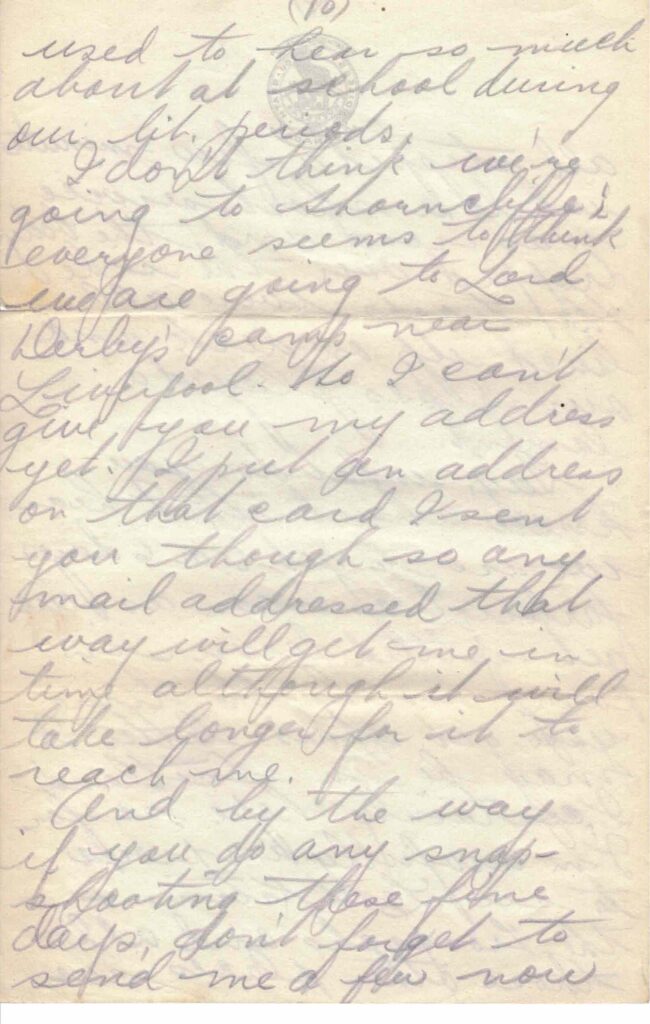 (10)
used to hear so much
about at school during
our lit. periods.
I don't think we're
going to Shorncliffe;
everyone seems to think
we are going to Lord
Derby's camp near
Liverpool. So I can't
give you my address
yet. I put an address
on that card I sent
you though so any
mail addressed that
way will get me in
time although it will
take longer for it to
reach me.
And by the way
if you do any snap-
shooting these fine
days, don't forget to
send me a few now